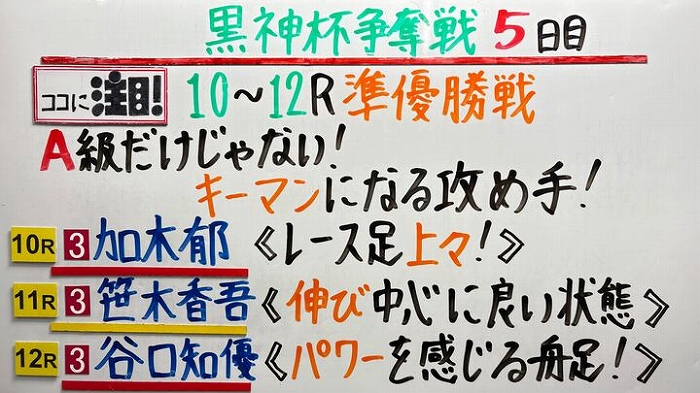 黒神杯争奪戦 5日目
ココに注目! 10~12R準優勝戦
A級だけじゃない!
キーマンになる攻め手!
10R 3 加木郁 《レース足上々!》
11R 3 笹木香吾《伸び中心に良い状態》
12R 3 谷口知優《パワーを感じる舟足!》